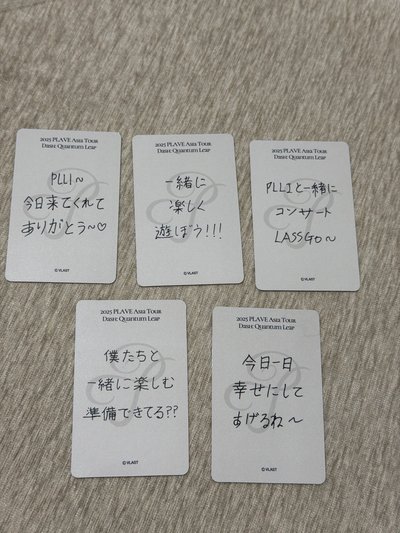 2025 PLAVE Asia Tour
Dash: Quantum Leap
PLLI~
今日来てくれて
ありがとう~♡
© VLAST
2025 PLAVE Asia Tour
Dash: Quantum Leap
一緒に
楽しく
遊ぼう!!!
© VLAST
2025 PLAVE Asia Tour
Dash: Quantum Leap
PLLIと一緒に
コンサート
LASSGO~
© VLAST
2025 PLAVE Asia Tour
Dash: Quantum Leap
僕たちと
一緒に楽しむ
準備できてる??
© VLAST
2025 PLAVE Asia Tour
Dash: Quantum Leap
今日一日
幸せにして
すげるね~
© VLAST